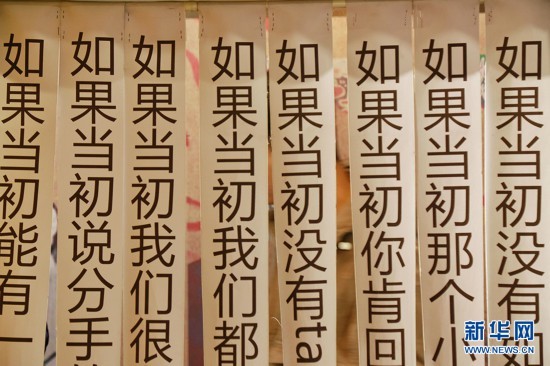 如果当初能有一
如果当初说分手
如果当初我们很
如果当初我们都
如果当初没有ta
如果当初你肯回
如果当初那个小
如果当初没有如
新华网
WWW.NEWS.CN